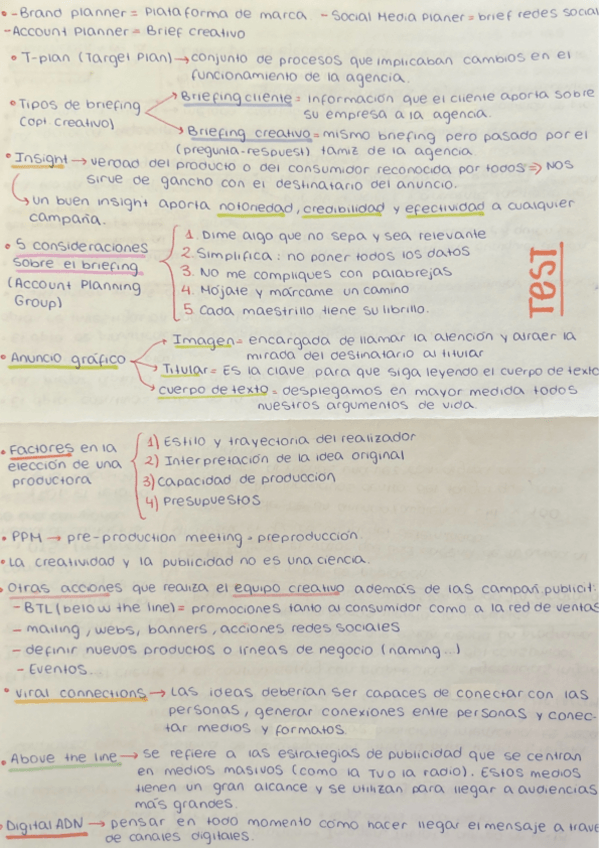 • - Brand planner = Plataforma de marca - Social Media Planer = brief redes social
- Account Planner = Brief creativo
• T-plan (Target Plan) → conjunto de procesos que implicaban cambios en el
funcionamiento de la agencia.
• Tipos de briefing
(copt creativo)
→ Briefing cliente = información que el cliente aporta sobre
su empresa a la agencia.
→ Briefing creativo = mismo briefing pero pasado por el
(pregunta-respuest) tamiz de la agencia.
• Insight → verdad del producto o del consumidor reconocida por todos ⇒ NOS
sirve de gancho con el destinatario del anuncio.
→ un buen insight aporta notoriedad, credibilidad y efectividad a cualquier
campaña.
• 5 consideraciones
sobre el briefing
(Account Planning
Group)
1. Dime algo que no sepa y sea relevante
2. Simplifica: no poner todos los datos
3. No me compliques con palabrejas
4. Mójate y márcame un camino
5. Cada maestrillo tiene su librillo.
TEST
• Anuncio gráfico
→ Imagen = encargada de llamar la atención y atraer la
mirada del destinatario al titular
→ Titular = Es la clave para que siga leyendo el cuerpo de texto
→ cuerpo de texto = desplegamos en mayor medida todos
nuestros argumentos de vida.
• Factores en la
elección de una
productora
1) Estilo y trayectoria del realizador
2) Interpretación de la idea original
3) Capacidad de producción
4) Presupuestos
• PPM → pre-production meeting • preproducción.
• La creatividad y la publicidad no es una ciencia.
• Otras acciones que realiza el equipo creativo además de las campañ. publicit:
- BTL (below the line) = promociones tanto al consumidor como a la red de ventas
- mailing, webs, banners, acciones redes sociales
- definir nuevos productos o líneas de negocio (naming...)
- Eventos.
• Viral connections → Las ideas deberían ser capaces de conectar con las
personas, generar conexiones entre personas y conec-
tar medios y formatos.
• Above the line → se refiere a las estrategias de publicidad que se centran
en medios masivos (como la TV o la radio). Estos medios
tienen un gran alcance y se utilizan para llegar a audiencias
más grandes.
• Digital ADN → pensar en todo momento cómo hacer llegar el mensaje a trave
de canales digitales.